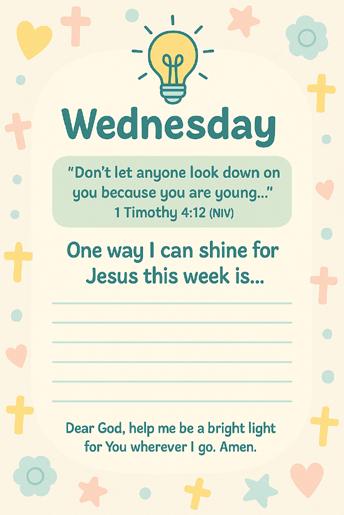 Wednesday
"Don't let anyone look down on
you because you are young..."
1 Timothy 4:12 (NIV)
One way I can shine for
Jesus this week is...
Dear God, help me be a bright light
for You wherever I go. Amen.